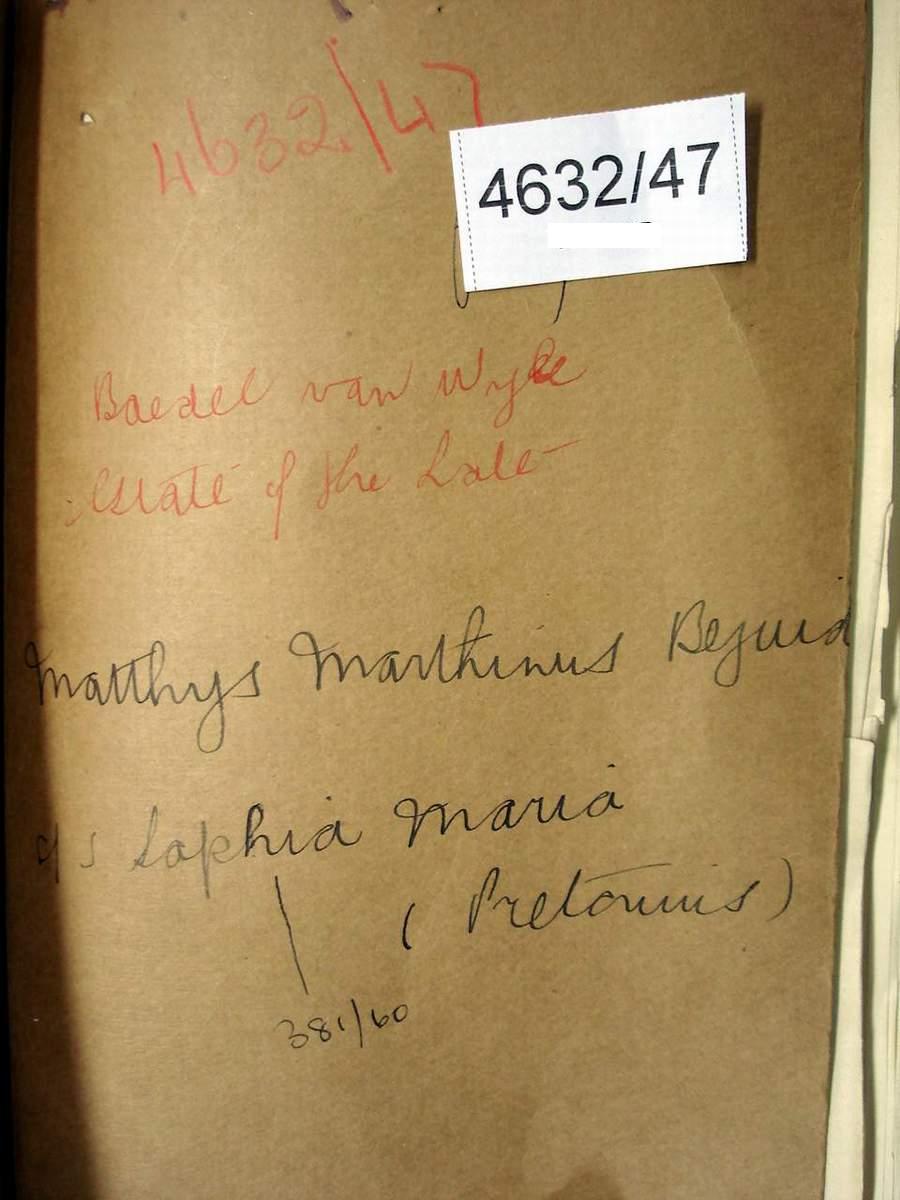 4632/47
4632/47
Boedel van Wyle
Estate of the Late
Matthys Marthinus Bejuid
o/s Sophia Maria
( Pretorius)
381/60